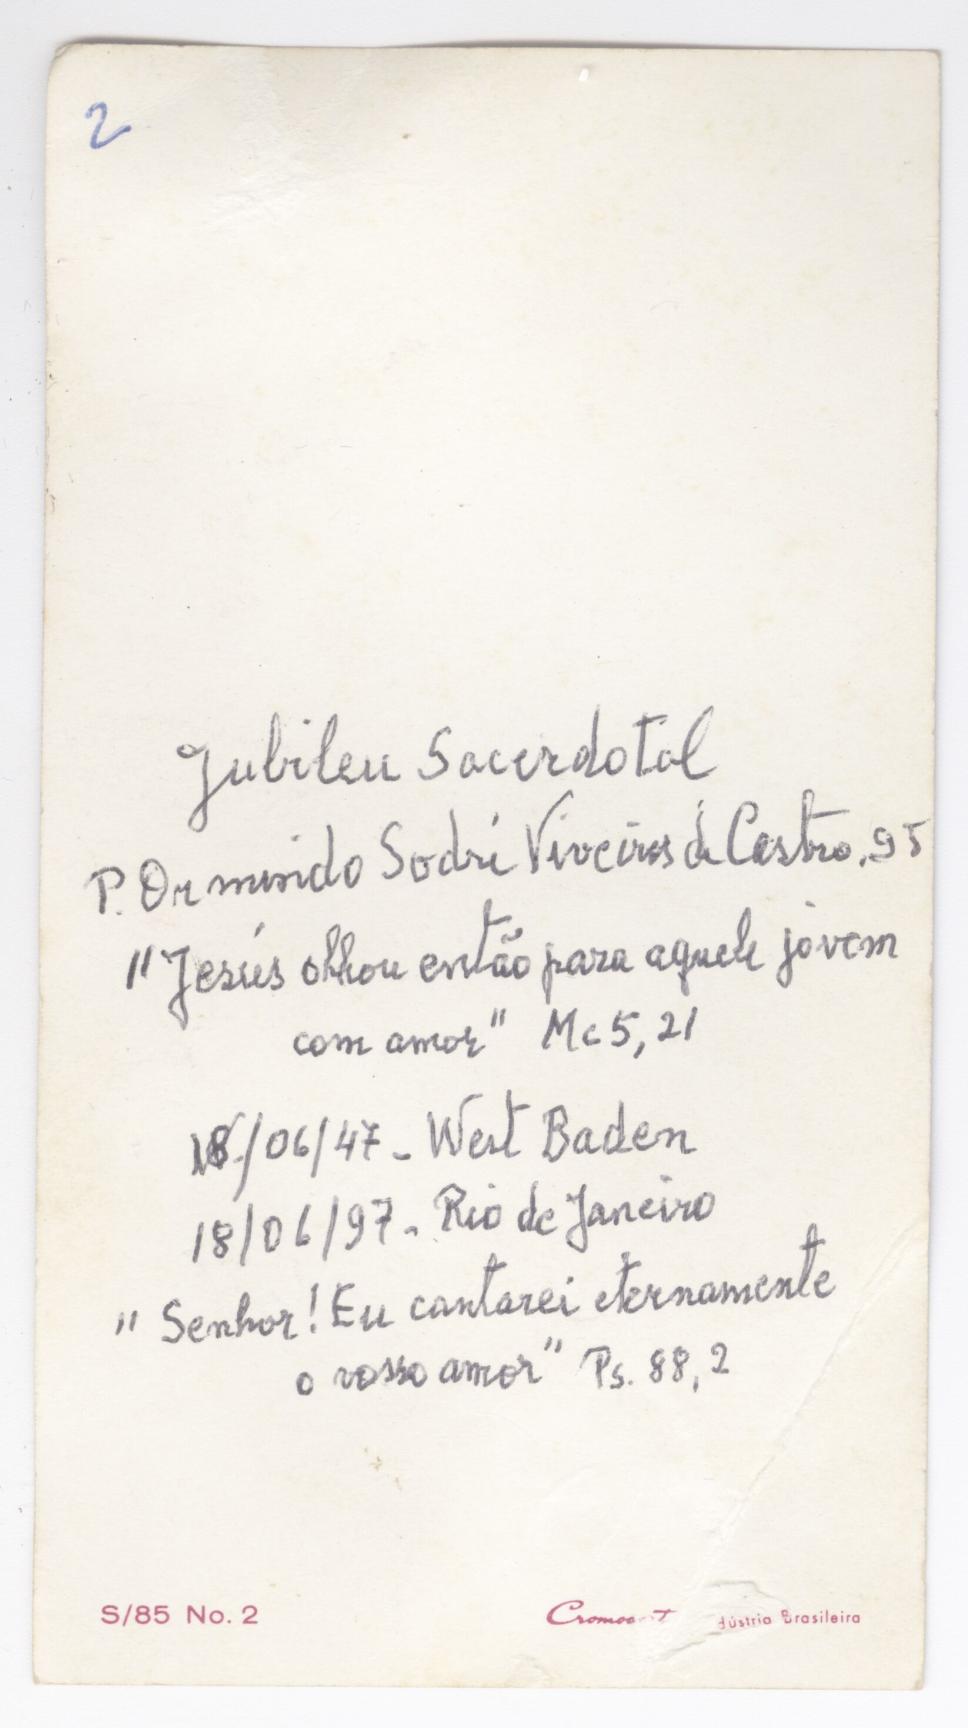 2
Jubileu Sacerdotal
P. Ormindo Sodré Viveiros de Castro, SJ
"Jesús olhou então para aquele jovem
com amor" Mc 5, 21
18/06/47 - West Baden
18/06/97 - Rio de Janeiro
" Senhor! Eu cantarei eternamente
o vosso amor" Ps. 88, 2
S/85 No. 2
Brasileira